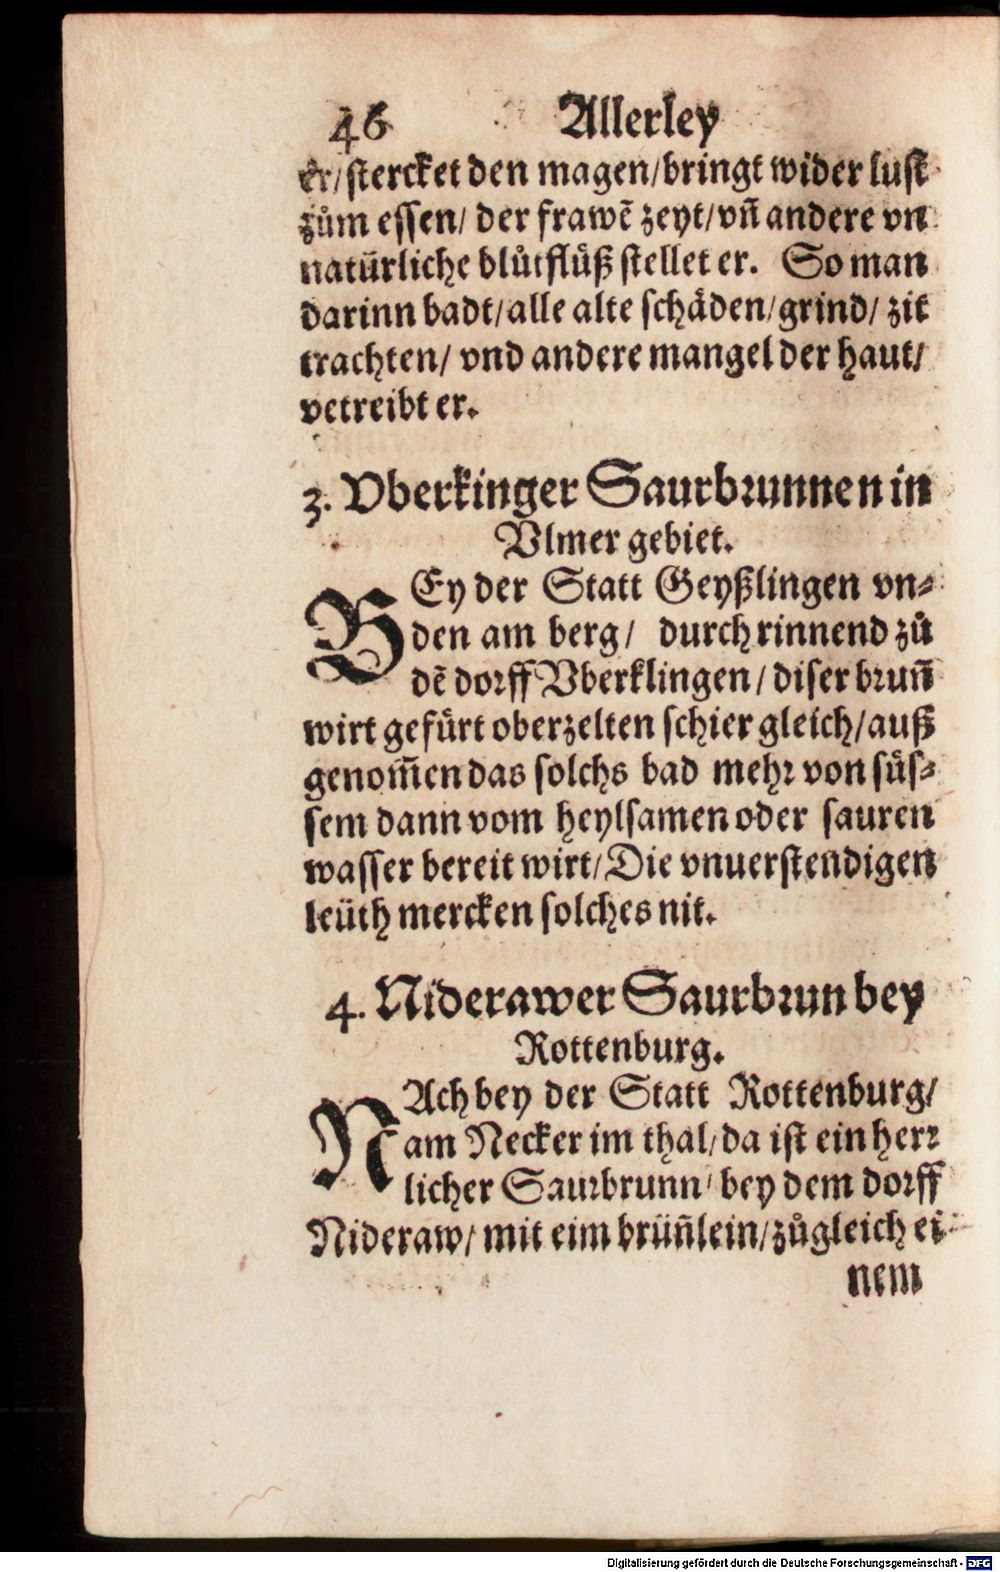 46 Allerley
er/stercket den magen/bringt wider lust
zům essen/ der frawẽ zeyt/vñ andere vn
natürliche blůtflüß stellet er. So man
darinn badt/alle alte schäden/grind/ zit
trachten/ vnd andere mangel der haut/
vetreibt er.
3. Vberkinger Saurbrunnen in
Vlmer gebiet.
BEy der Statt Geyßlingen vn-
den am berg/ durch rinnend zů
dẽ dorff Vberklingen/diser brun̄
wirt gefürt oberzelten schier gleich/auß
genom̃en das solchs bad mehr von süs-
sem dann vom heylsamen oder sauren
wasser bereit wirt/Die vnuerstendigen
leüth mercken solches nit.
4. Niderawer Saurbrun bey
Rottenburg.
NAch bey der Statt Rottenburg/
am Necker im thal/da ist ein herr
licher Saurbrunn/bey dem dorff
Nideraw/ mit eim brün̄lein/zůgleich ei-
nem
Digitalisierung gefördert durch die Deutsche Forschungsgemeinschaft - DFG